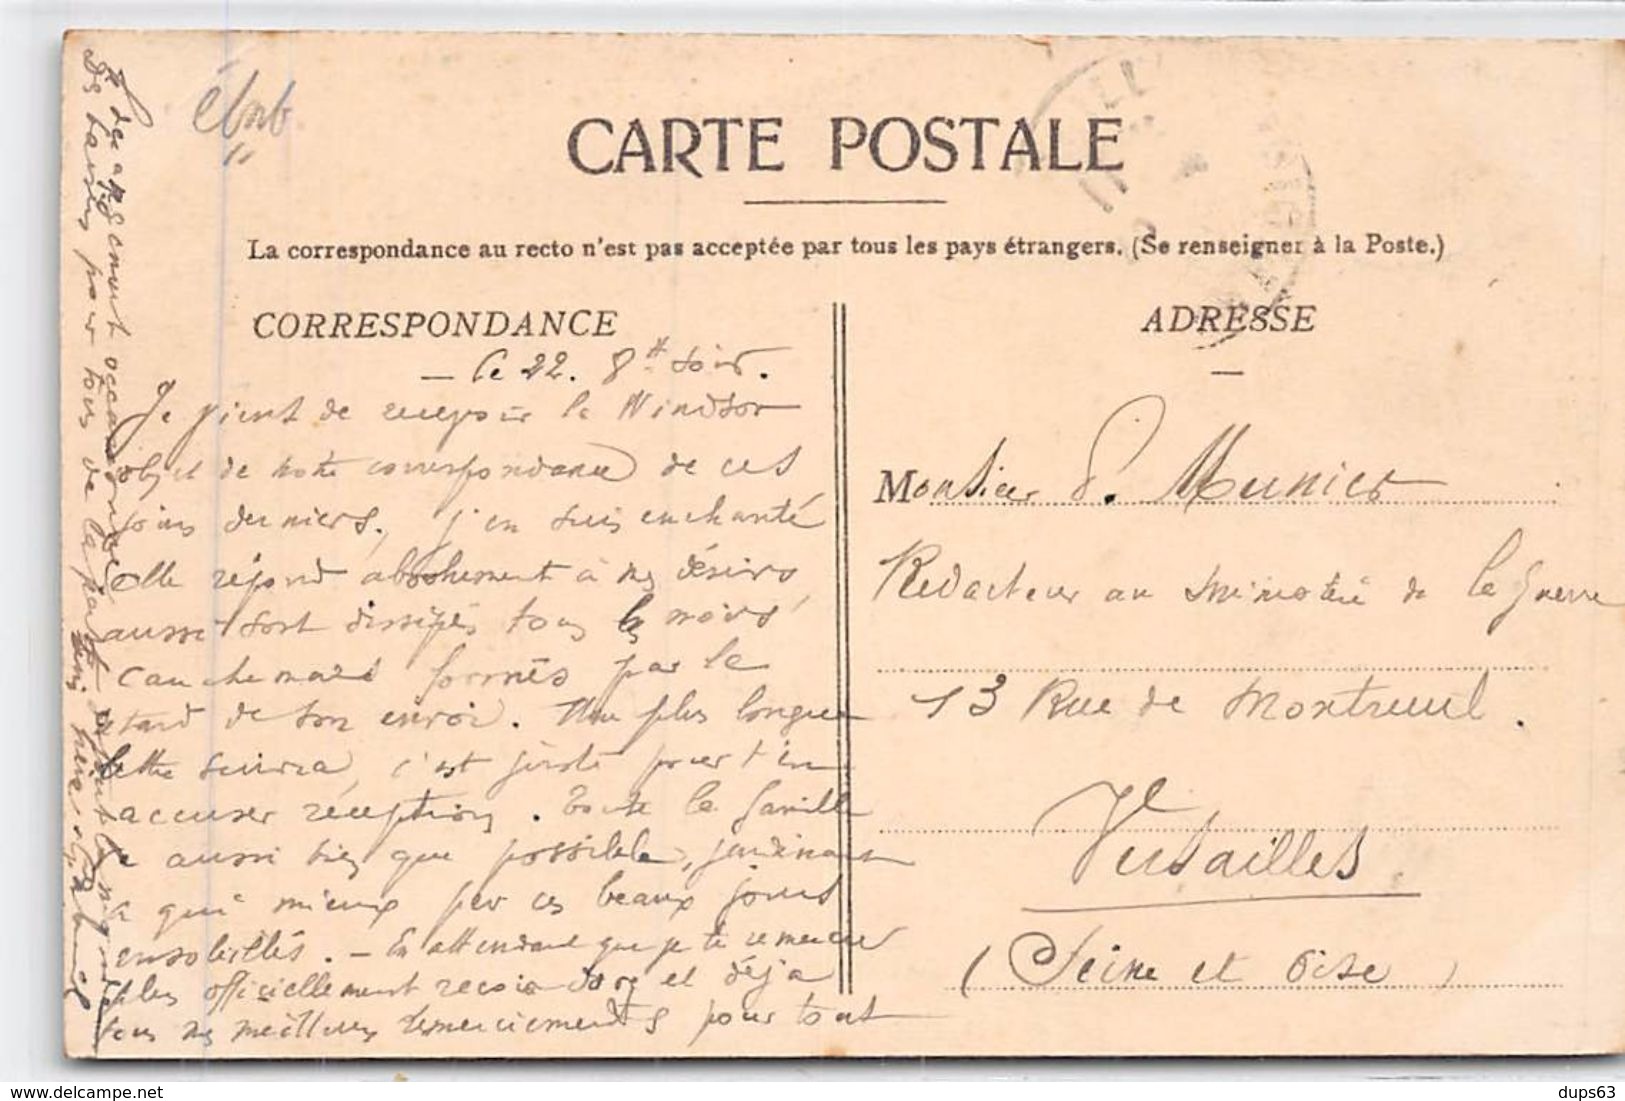 CARTE POSTALE
La correspondance au recto n'est pas acceptée par tous les pays étrangers. (Se renseigner à la Poste.)
CORRESPONDANCE
Le 22. 8h soir.
Je viens de recevoir la Windsor
objet de notre correspondance de ces
jours derniers, j'en suis enchanté
elle répond absolument à mes désirs,
aussi sont dissipés tous les noirs
cauchemars formés par le
retard de son envoi. Une plus longue
lettre suivra, c'est juste pour t'en
accuser réception. Toute la famille
va aussi bien que possible, jardinant
à qui mieux par ces beaux jours
ensoleillés. - En attendant que je te remercie
plus officiellement reçois donc et déjà
tous mes meilleurs remerciements pour tout
le dérangement occasionné
Des baisers pour tous de la part
ADRESSE
Monsieur P. Munier
Rédacteur au Ministère de la Guerre
13 Rue de Montreuil.
Versailles
(Seine et Oise)
dups63